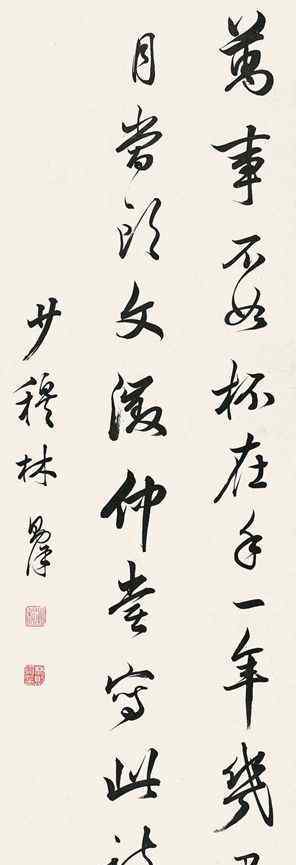 萬事不如杯在手一年幾
月當頭文徵仲嘗寫此
少穆林則徐